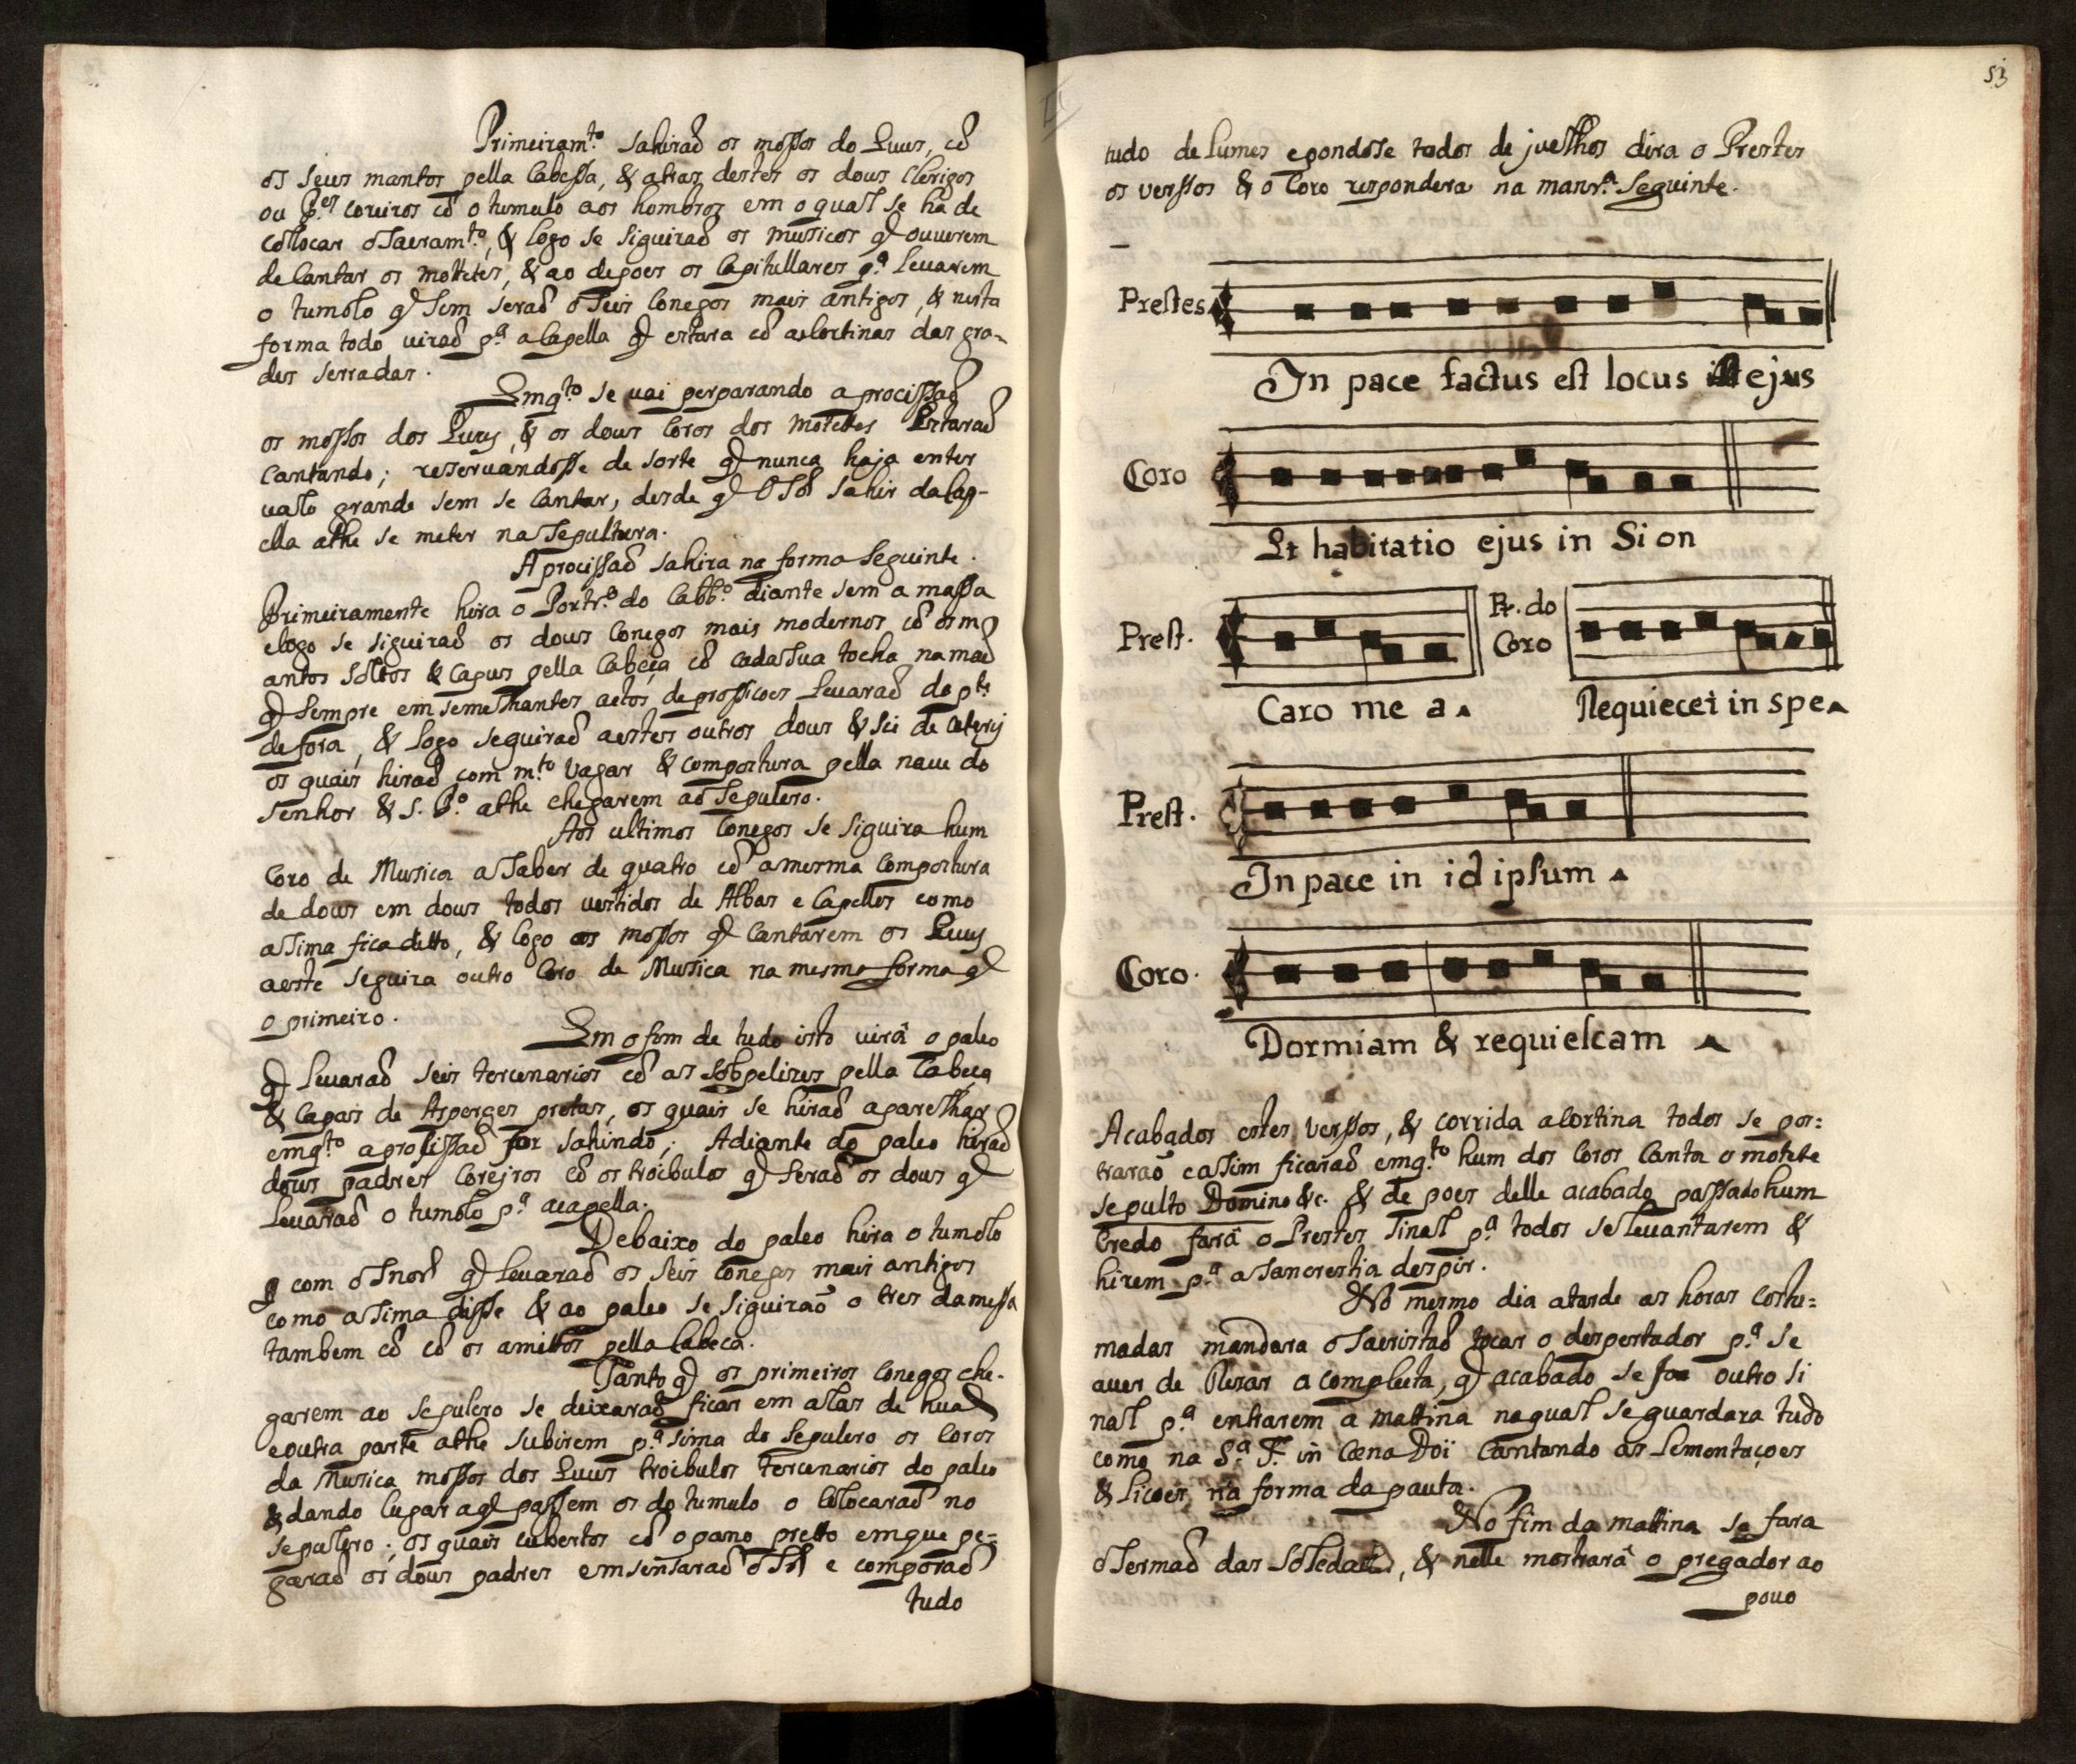 Primeiramto. sahiraõ os mossos do Luus, cõ
os seus mantos pella Cabessa, & atras destes os dous Clerigos
ou Pes. coreiros cõ o tumulo aos hombros em o qual se há de
collocar o Sacramto., & logo se siguiraõ os mussicos q̃ ouuerem
de Cantar os mottetes, & ao depoes os Capitullares pa. Leuarem
o tumolo q̃ sem seraõ o seis Conegos mais antigos, & nesta
forma todo uiraõ pa. a Capella q̃ estara cõ as Cortinas das gra-
des serradas.
Emqto. se uai perparando a procissaõ
os mossos dos Luus, & os dous Coros dos Motettes Estaraõ
Cantando; resseruandosse de sorte q̃ nunca haja enter
ualo grande sem se Cantar, desde q̃ O Sõr sahir da Cap-
ella athe se meter na Sepultura.
A procissaõ sahira na forma seguinte.
Primeiramente hira o Portro. do Cabbo. diante sem a massa
e logo se siguiraõ os dous Conegos mais modernos cõ os m
antos soltos & capus pella Cabeça cõ cada sua tocha na maõ
q̃ sempre em semelhantes actos de prossicoes Leuaraõ da pte.
de fora, & logo seguiraõ a estes outros dous & sic de ceterij
os quais hiraõ com mto. Vagar & compostura pella naue do
Senhor & S. Po. athe chegarem ao Sepulcro.
Aos ultimos Conegos se siguira hum
Coro de Mussica a saber de quatro cõ a mesma Compostura
de dous em dous todos uestidos de Albas e Capellos como
a sima fica ditto, & logo os mossos q̃ Cantarem os Luus
a este seguira outro Coro de Mussica na mesma forma q̃
o primeiro.
Em o fim de tudo isto uirâ o paleo
q̃ Leuaraõ seis tercenarios cõ as sobpelizes pella Cabeça
& Capas de Asperges pretas, os quais se hiraõ aparelhar
emqto. a procissaõ for sahindo; Adiante do paleo hiraõ
dous padres Corejros cõ os troibulos q̃ seraõ os dous q̃
Leuaraõ o tumolo pa. a capella.
Debaixo do paleo hira o tumolo
com o Snor q̃ Leuaraõ os seis conegos mais antigos
como a sima disse & ao paleo se siguiraõ o tres da messa
tambem cõ cõ os amittos pella Cabeca.
Tanto q̃ os primeiros Conegos che-
garem ao sepulcro se deixaraõ ficar em alas de hua
e outra parte athe subirem pa. sima do sepulcro os Coros
da Mussica mossos dos Luus troibulos tercenarios do paleo
& dando lugar a q̃ passem os do tumulo o Colocaraõ no
sepulcro; os quais cubertos cõ o pano pretto em que pe-
garaõ os dous padres emsensaraõ o Sõr e comporaõ
tudo
53
tudo de Lumes e pondose todos de juelhos dira o Prestes
os verssos & o Coro respondera na manra. Seguinte.
Prestes
In pace factus est locus ejus
Coro
Et habitatio ejus in Sion
Prest. Pt. do
Coro
Caro me a Requiecet in spe
Prest.
In pace in id ipsum
Coro.
Dormiam & requiescam
Acabados estes verssos, & corrida a Cortina todos se pos:
traraõ e assim ficaraõ emqto. hum dos Coros Canta o motete
sepulto Domino &c. & de poes delle acabado passado hum
Credo farâ o Prestes sinal pa. todos se Leuantarem &
hirem pa. a Sancrestia despir.
No mesmo dia a tarde as horas Costu=
madas mandara o Sacristaõ tocar o despertador pa. se
auer de Rezar a completa, q̃ acabado se faz outro si
nal pa. entrarem a mattina na qual se guardara tudo
como na Sa. F. in Cœna Doï Cantando as Lementaçoes
& Licoes na forma da pauta.
No fim da mattina se fara
o sermaõ das Soledades, & nelle mostrarâ o pregador ao
pouo